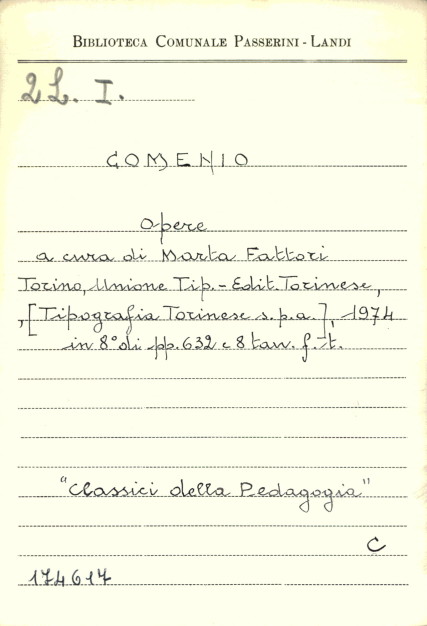 BIBLIOTECA COMUNALE PASSERINI - LANDI
2L. I.
COMENIO
Opere
a cura di Marta Fattori
Torino, Unione Tip.- Edit. Torinese,
, [Tipografia Torinese s.p.a.], 1974
in 8° di pp. 632 e 8 tav. f.-t.
"Classici della Pedagogia"
C
174617